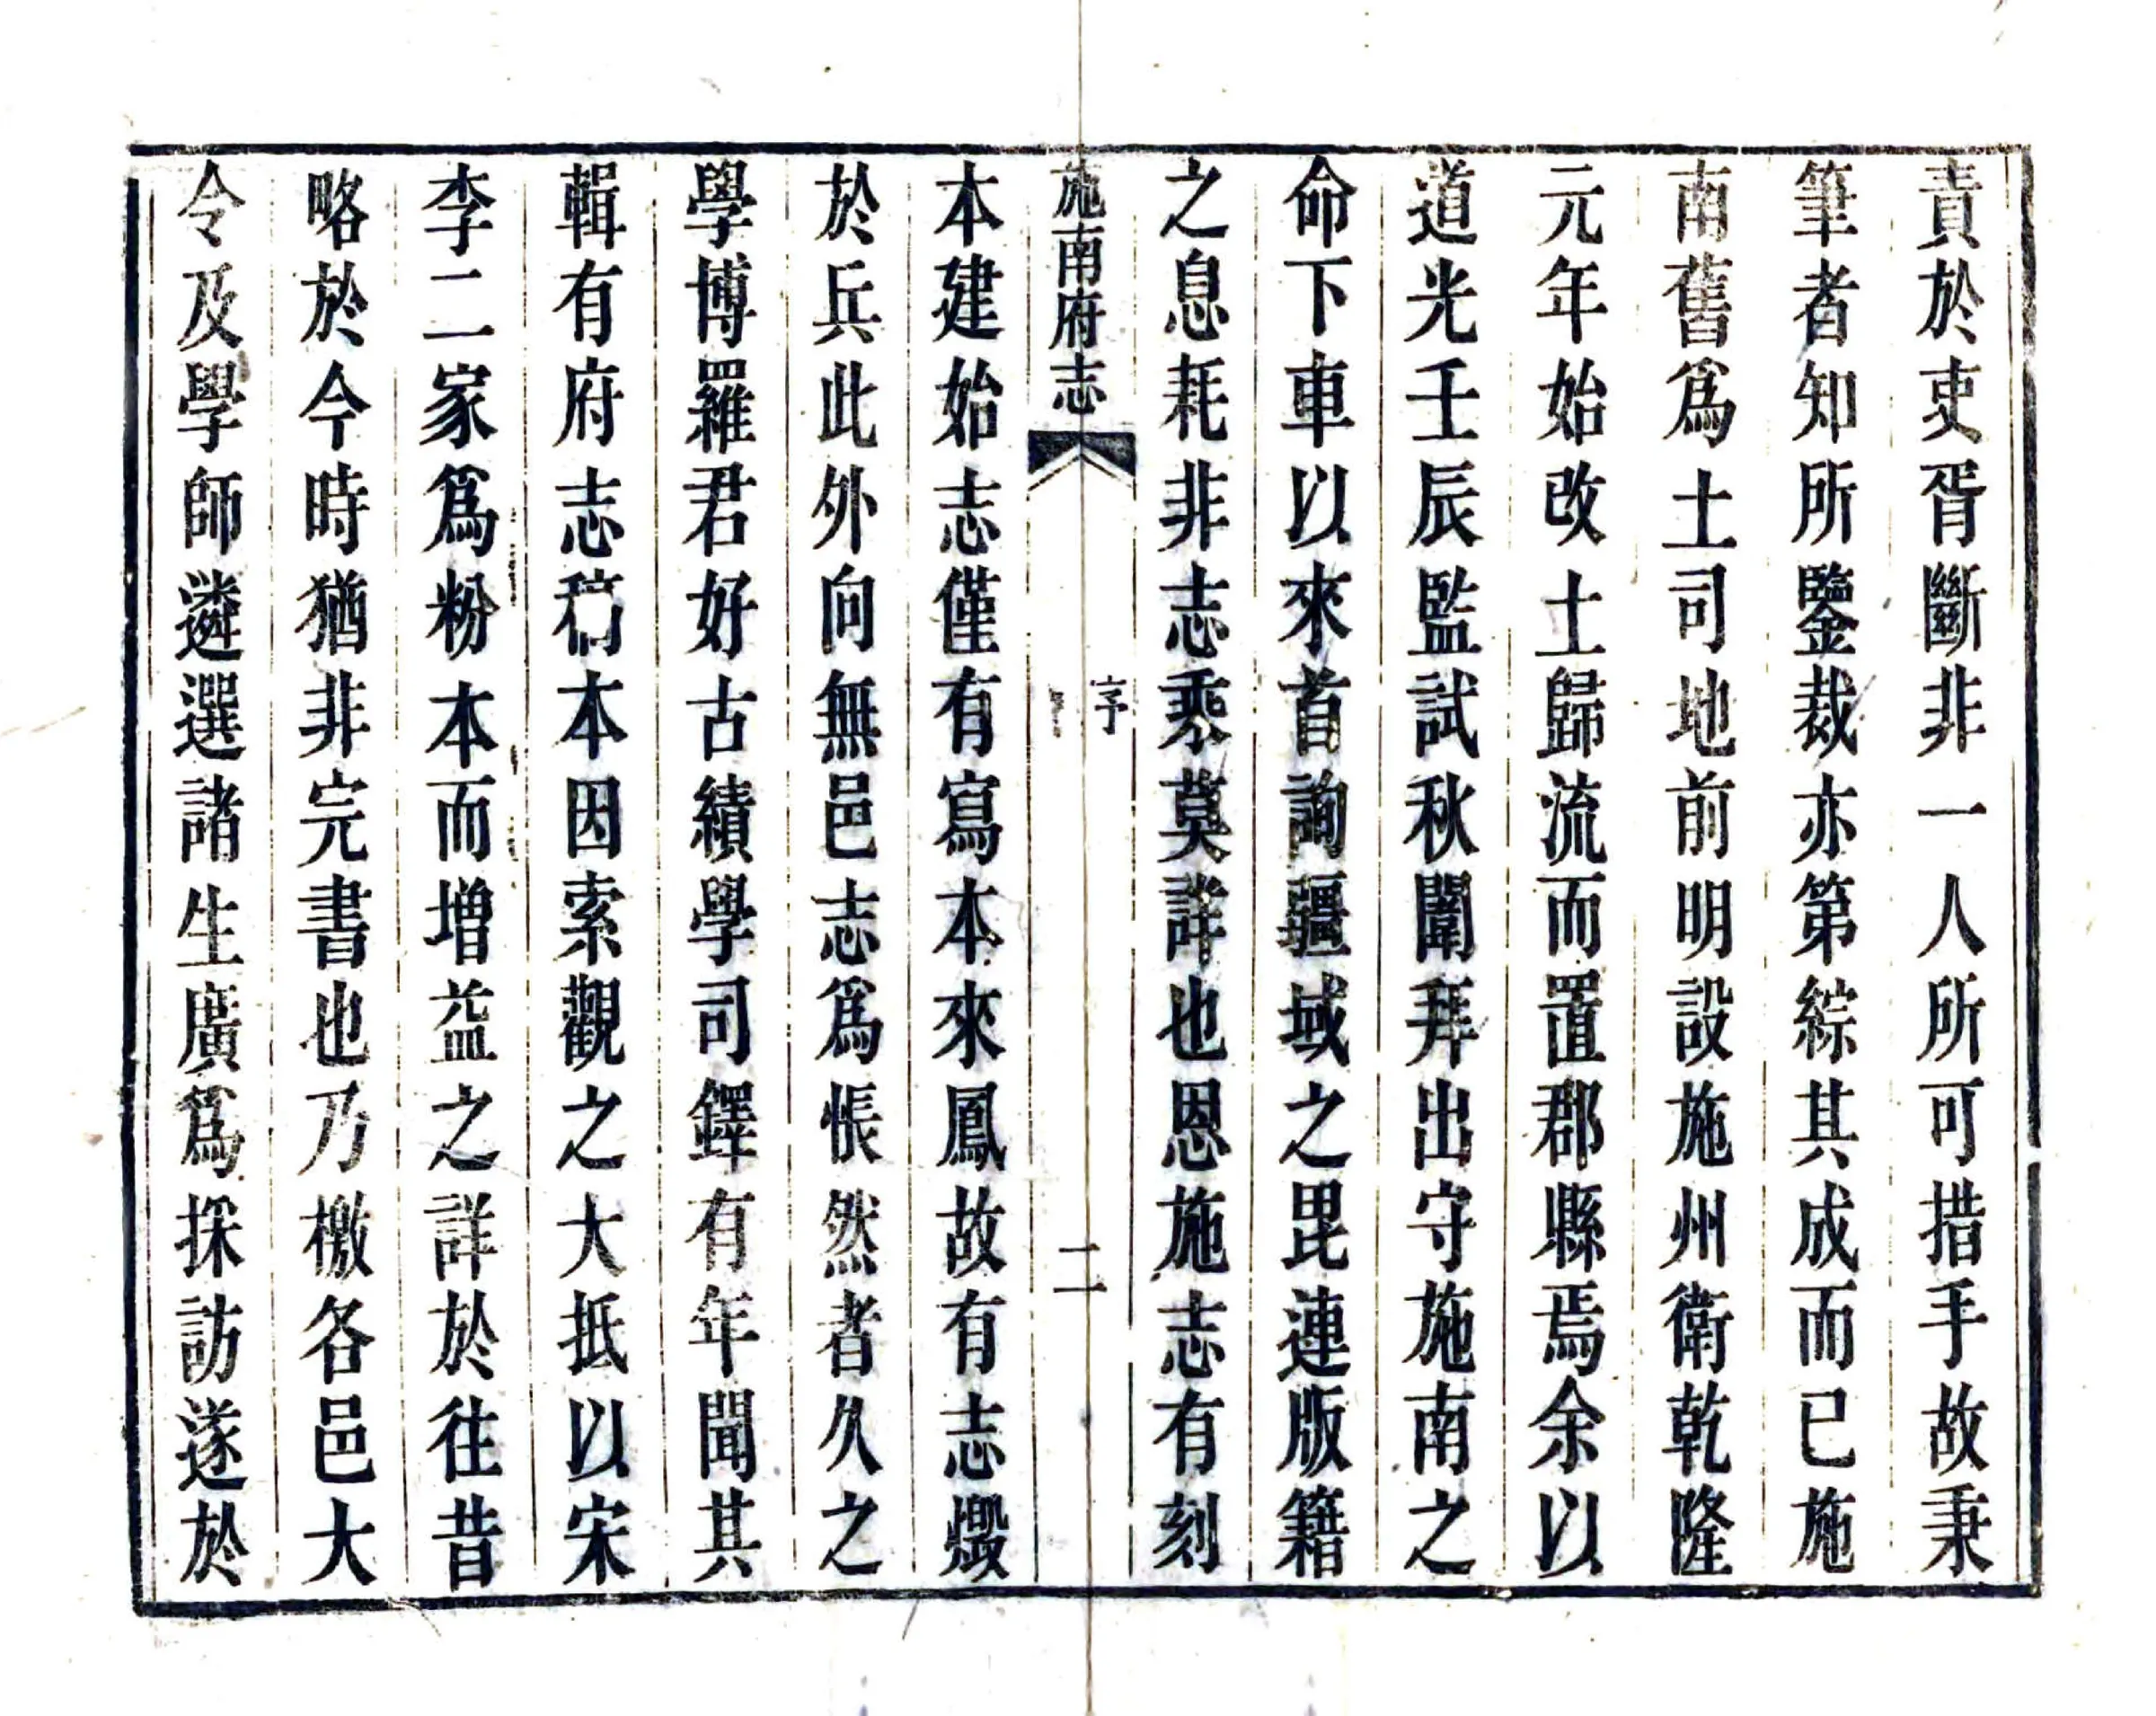 責於吏胥斷非一人所可措手故秉
筆者知所鑒裁亦第綜其成而已施
南舊為土司地前明設施州衛乾隆
元年始改土歸流而置郡縣焉余以
道光壬辰監試秋闈拜出守施南之
命下車以來首詢疆域之毘連版籍
之息耗非志乘莫詳也恩施志有刻
施南府志
序
二
本建始志僅有寫本來鳳故有志燬
於兵此外向無邑志為悵然者久之
學博羅君好古績學司鐸有年聞其
輯有府志稿本因索觀之大抵以宋
李二家為粉本而增益之詳於往昔
略於今時猶非完書也乃檄各邑大
令及學師遴選諸生廣為採訪遂於